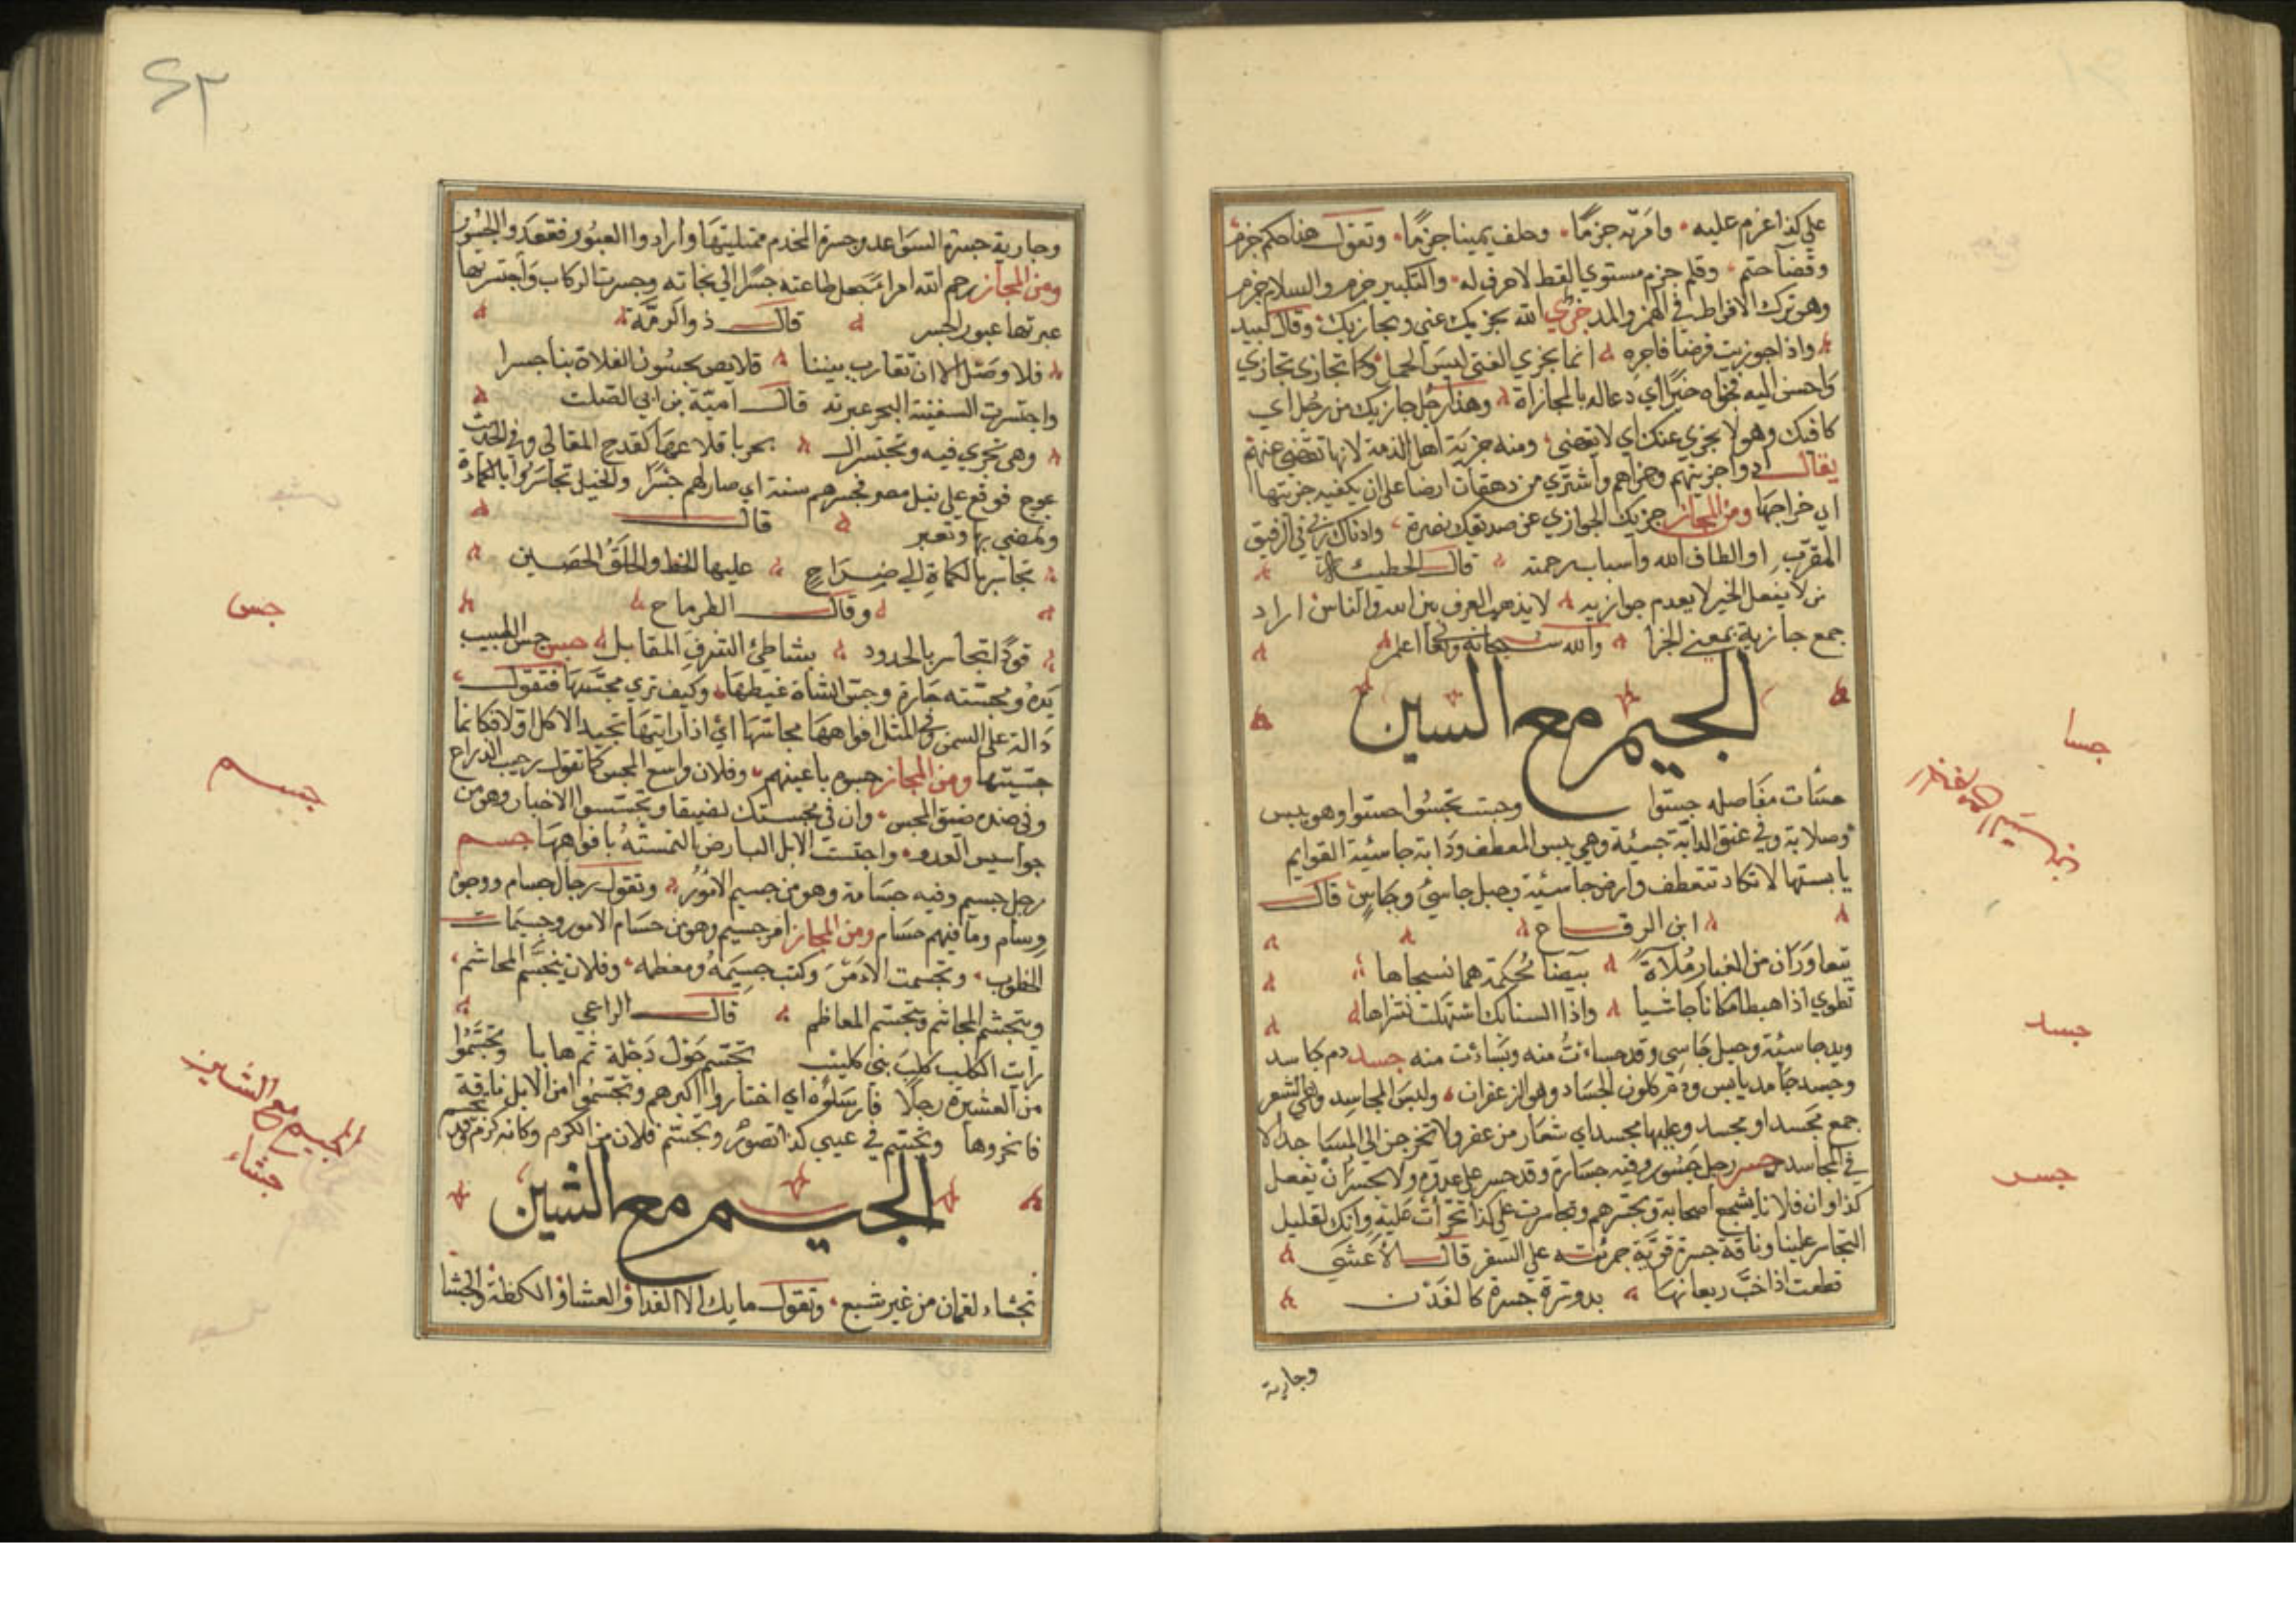 على كذا عزم عليه وامر به جزما وحلف يمينا جزما وتقول هذا حكم جزم
وقضا حتم وقلم جزم مستوي القط لا حرف له والتكبير جزم والسلام جزم
وهو ترك الافراط في الهمز والمد جزي الله يجزيك عني ويجازيك وقال لبيد
واذا جوزيت قرضا فاجزه انما يجزي الفتى ليس الجمل كما تجازي تجازي
واحسن اليه فجزاه خيرا اي دعا له بالمجازاة وهذا رجل جازيك من رجل اي
كافيك وهو لا يجزي عنك اي لا يقضي ومنه جزية اهل الذمة لانها تقضي عنهم
يقال ادوا جزيتهم وجزاهم واشتري من دهقان ارضا على ان يكفيه جزيتها
اي خراجها ومن المجاز جزيك الجوازي عن صديقك نصرة
المقرب او الطاف الله واسباب رحمته قال الحطيئة
من لا يفعل الخير لا يعدم جوازيه لا يذهب العرف بين الله والناس اراد
جمع جازية بمعنى الجزا والله سبحانه وتعالى اعلم
الجيم مع السين
جسات مفاصله جسوا وجست تجسوا جسوا وهو يبس
وصلابة وفي عنق الدابة جسئة وهي يبس المعطف ودابة جاسئية القوايم
يابستها لا تكاد تنعطف وارض جاسئية وجبل جاسئ وجاس قال
ابن الرقاع
يتعاوران من الغبار ملاة بيضا محكمة هما نسجاها
تطوي اذا هبطا مكانا جاشيا واذا السنابك اشهلت نشراها
ويد جاسئة وجبل جاسي وقد جساءت منه جسد دم جاسد
وجسد جامد يابس وهو كلون الجساد وهو الزعفران ولبس المجاسد وهي الشعر
جمع مجسد او مجسد وعليها مجسد اي شعار من عفر ولا تخرجن الى المساجد الا
في المجاسد جسر رجل جسور وفيه جسارة وقد جسر على عدوه ولا يجسر ان يفعل
كذا وان فلانا يشجع اصحابه ويجسرهم وتجاسرت على كذا تجرأت عليه وانك لقليل
التجاسر علينا وناقة جسرة قوية جريئة على السفر قال الاعشى
قطعت اذا خب ريعانها بدوسرة جسرة كالفدن
وجارية
جسا
جسد
جسر
٤٣
وجارية جسرة السواعد وجسرة المخدم ممتليتها وارادوا العبور فعقدوا الجسور
ومن المجاز رحم الله امرا جعل طاعته جسرا الى نجاته وجسرت الركاب واجتسرتها
عبرتها عبور الجسر قال ذو الرمة
فلا وصل الا ان تقارب بيننا قلايص يجسرن الفلاة بنا جسرا
واجتسرت السفينة البحر عبرته قال امية بن ابي الصلت
وهي تجري فيه وتجتسر ال بحر باقلاعها كقدح المغالي وفي الحديث
عوج فوقع على نيل مصر فجسرهم سنة اي صار لهم جسرا والخيل تجاسر بالكماة
وتمضي بها وتعبر قال
تجاسر بالكماة الى ضراح عليها الخط والحلق الحصين
وقال الطرماح
قودا تجاسر بالحدود بشاطئ الشرف المقابل جس جس الطبيب
يده ومجسته حارة وجس الشاة غبطها وكيف تري مجستها فتقول
دالة على السمن وفي المثل افواهها مجاسها اي اذا رايتها تجيد الاكل اولا فكانما
جسستها ومن المجاز جسوه باعينهم وفلان واسع المجس كما تقول رحيب الذراع
وفي ضده ضيق المجس وان في مجستك لضيقا وتجسسوا الاخبار وهو من
جواسيس العدو واجتست الابل البارض التمسته بافواهها جسم
رجل جسيم وفيه جسامة وهو من جسيم الامور وتقول رجال جسام ووجوه
وسام وما فيهم حسام ومن المجاز امر جسيم وهو من جسام الامور وجسيمات
الخطوب وتجسمت الامر وكتب جسيمه ومعظمه وفلان يتجسم المجاشم
ويتجشم المجاشم ويتجسم المعاظم قال الراعي
رات الكلب كلب بني كليب تجسم حول دجلة ثم هابا وتجسموا
من العشيرة رجلا فارسلوه اي اختاروا اكبرهم وتجسموا من الابل ناقة
فانحروها وتجسم في عيني كذا تصور وتجسم فلان من الكرم وكانه كرم قد تجسم
الجيم مع الشين
تجشاء لقمان من غير شبع وتقول ما بك الا الغدا والعشا والكظة والجشا
جس
جسم
الجيم مع الشين
جشاء